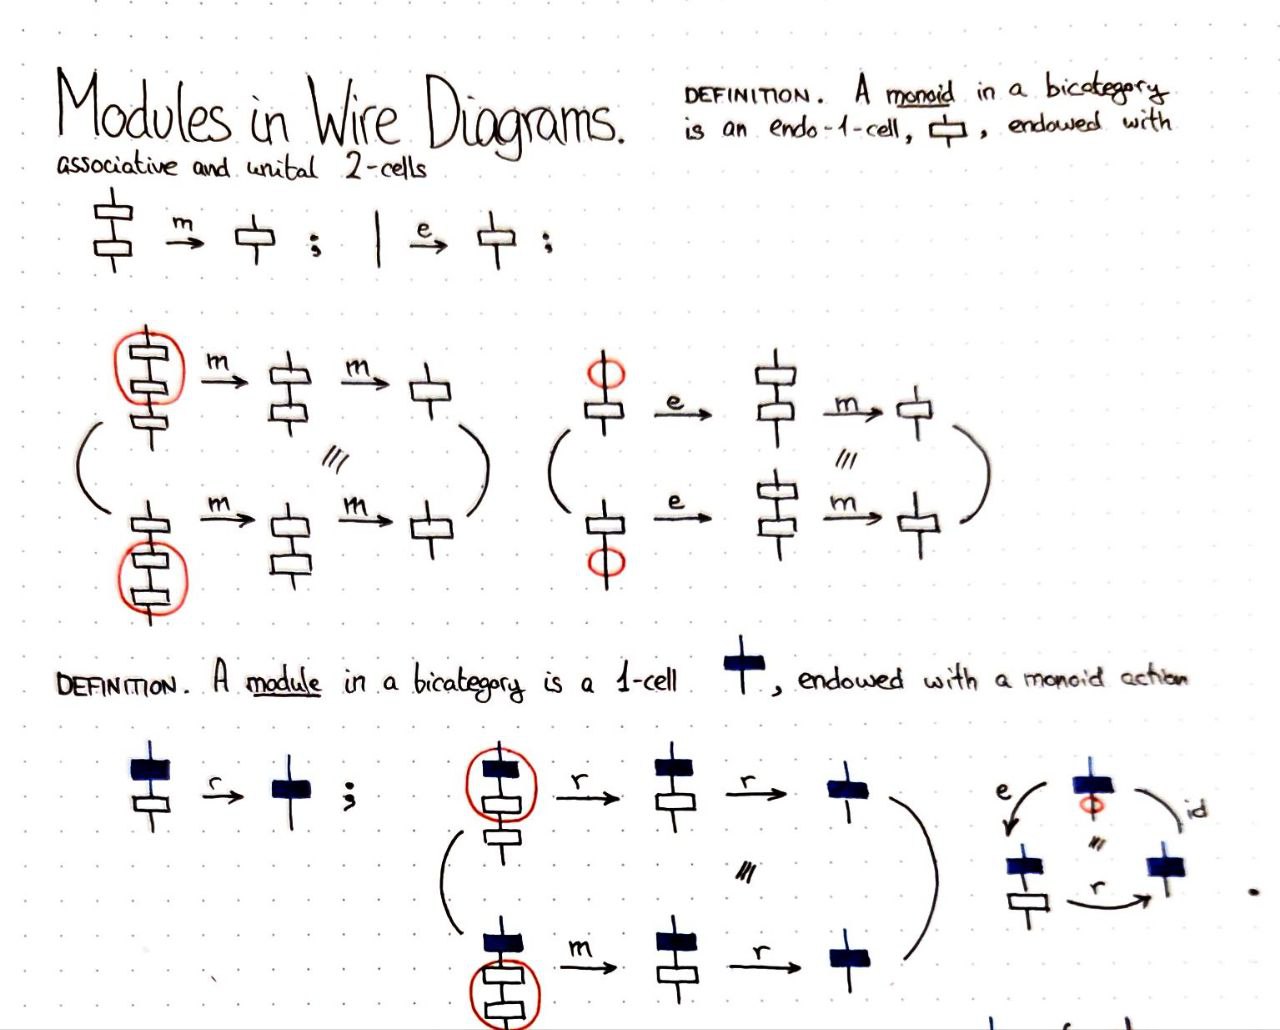 Modules in Wire Diagrams.
DEFINITION. A monoid in a bicategory
is an endo-1-cell, , endowed with
associative and unital 2-cells
m ; e ;
m m e m
m m e m
DEFINITION. A module in a bicategory is a 1-cell , endowed with a monoid action
r ; r r e id
r .
m r